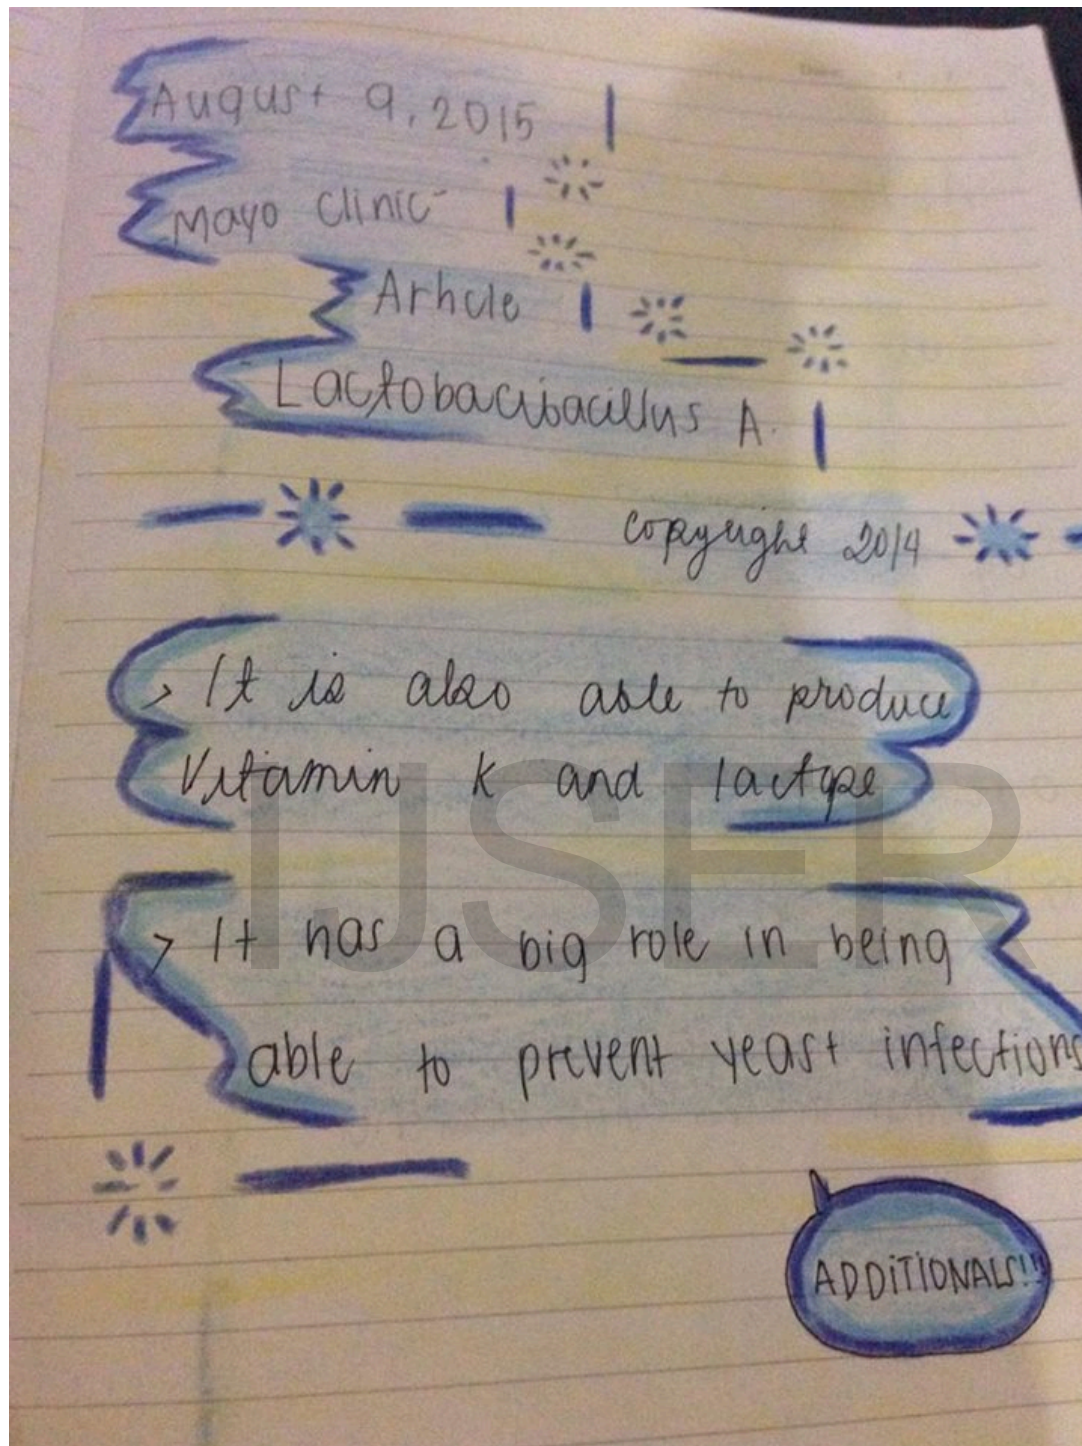 August 9, 2015
Mayo Clinic
Article
Lactobacibacillus A.
copyright 2014
> It is also able to produce
Vitamin K and lactose
> It has a big role in being
able to prevent yeast infections
ADDITIONALS!!!
IJSER